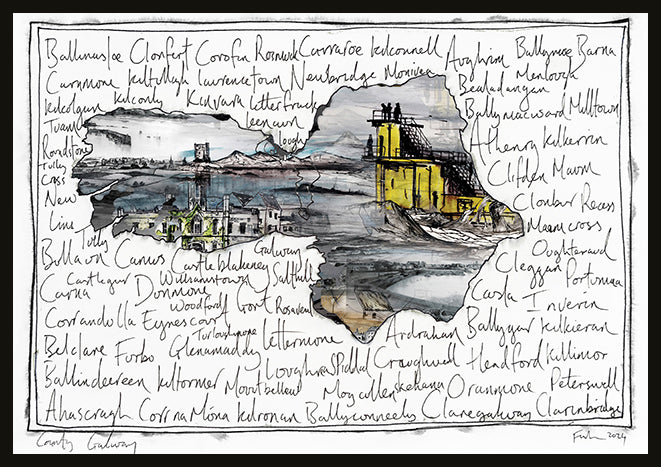 Ballinasloe Clonfert Corofin Rosmuck Carraroe Kilconnell Aughrim Ballymoe Barna
Carnmore Kiltullagh Laurencetown Newbridge Monivea Menlough
Bealadangan
Kilcolgan Kilconly Kinvara Letterfrack Ballymacward Milltown
Tuam Leenaun Athenry Kilkerrin
Lough
Roundstone Clifden Maum
Tully
Cross Clonbur Recess
New
Line Maamcross
Tully Oughterard
Bullaun Camus Castleblakeney Galway Cleggan Portumna
Castlegar Williamstown Salthill
Carna Dunmore Casla Inverin
Woodford Gort Rosaveal
Corrandolla Eyrescourt Ardrahan Ballygar Kilkieran
Turloughmore
Belclare Furbo Glenamaddy Lettermore
Loughrea Spiddal Craughwell Headford Killimor
Ballindereen Kiltormer Mountbellew Moycullen Oranmore Peterswell
Ahascragh Corr na Móna Kilronan Ballyconneely Claregalway Clarinbridge
County Galway 2024